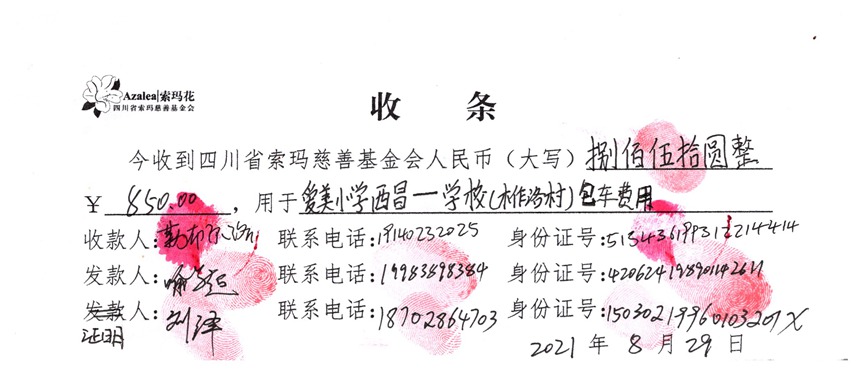 Azalea|索玛花
四川省索玛慈善基金会
收 条
今收到四川省索玛慈善基金会人民币（大写）捌佰伍拾圆整
￥ 850.00 ，用于爱美小学西昌—学校(木作洛村)包车费用
收款人: 联系电话:19140232025 身份证号:
发款人:喻 联系电话:19983898384 身份证号:
发款人:刘泽 联系电话:18702864703 身份证号:15030219960103201X
证明
2021 年 8 月 29 日